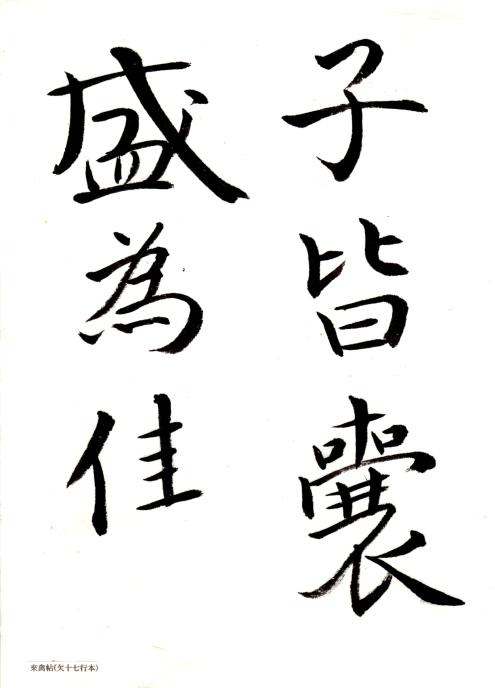 子皆囊
盛為佳
來禽帖(欠十七行本)